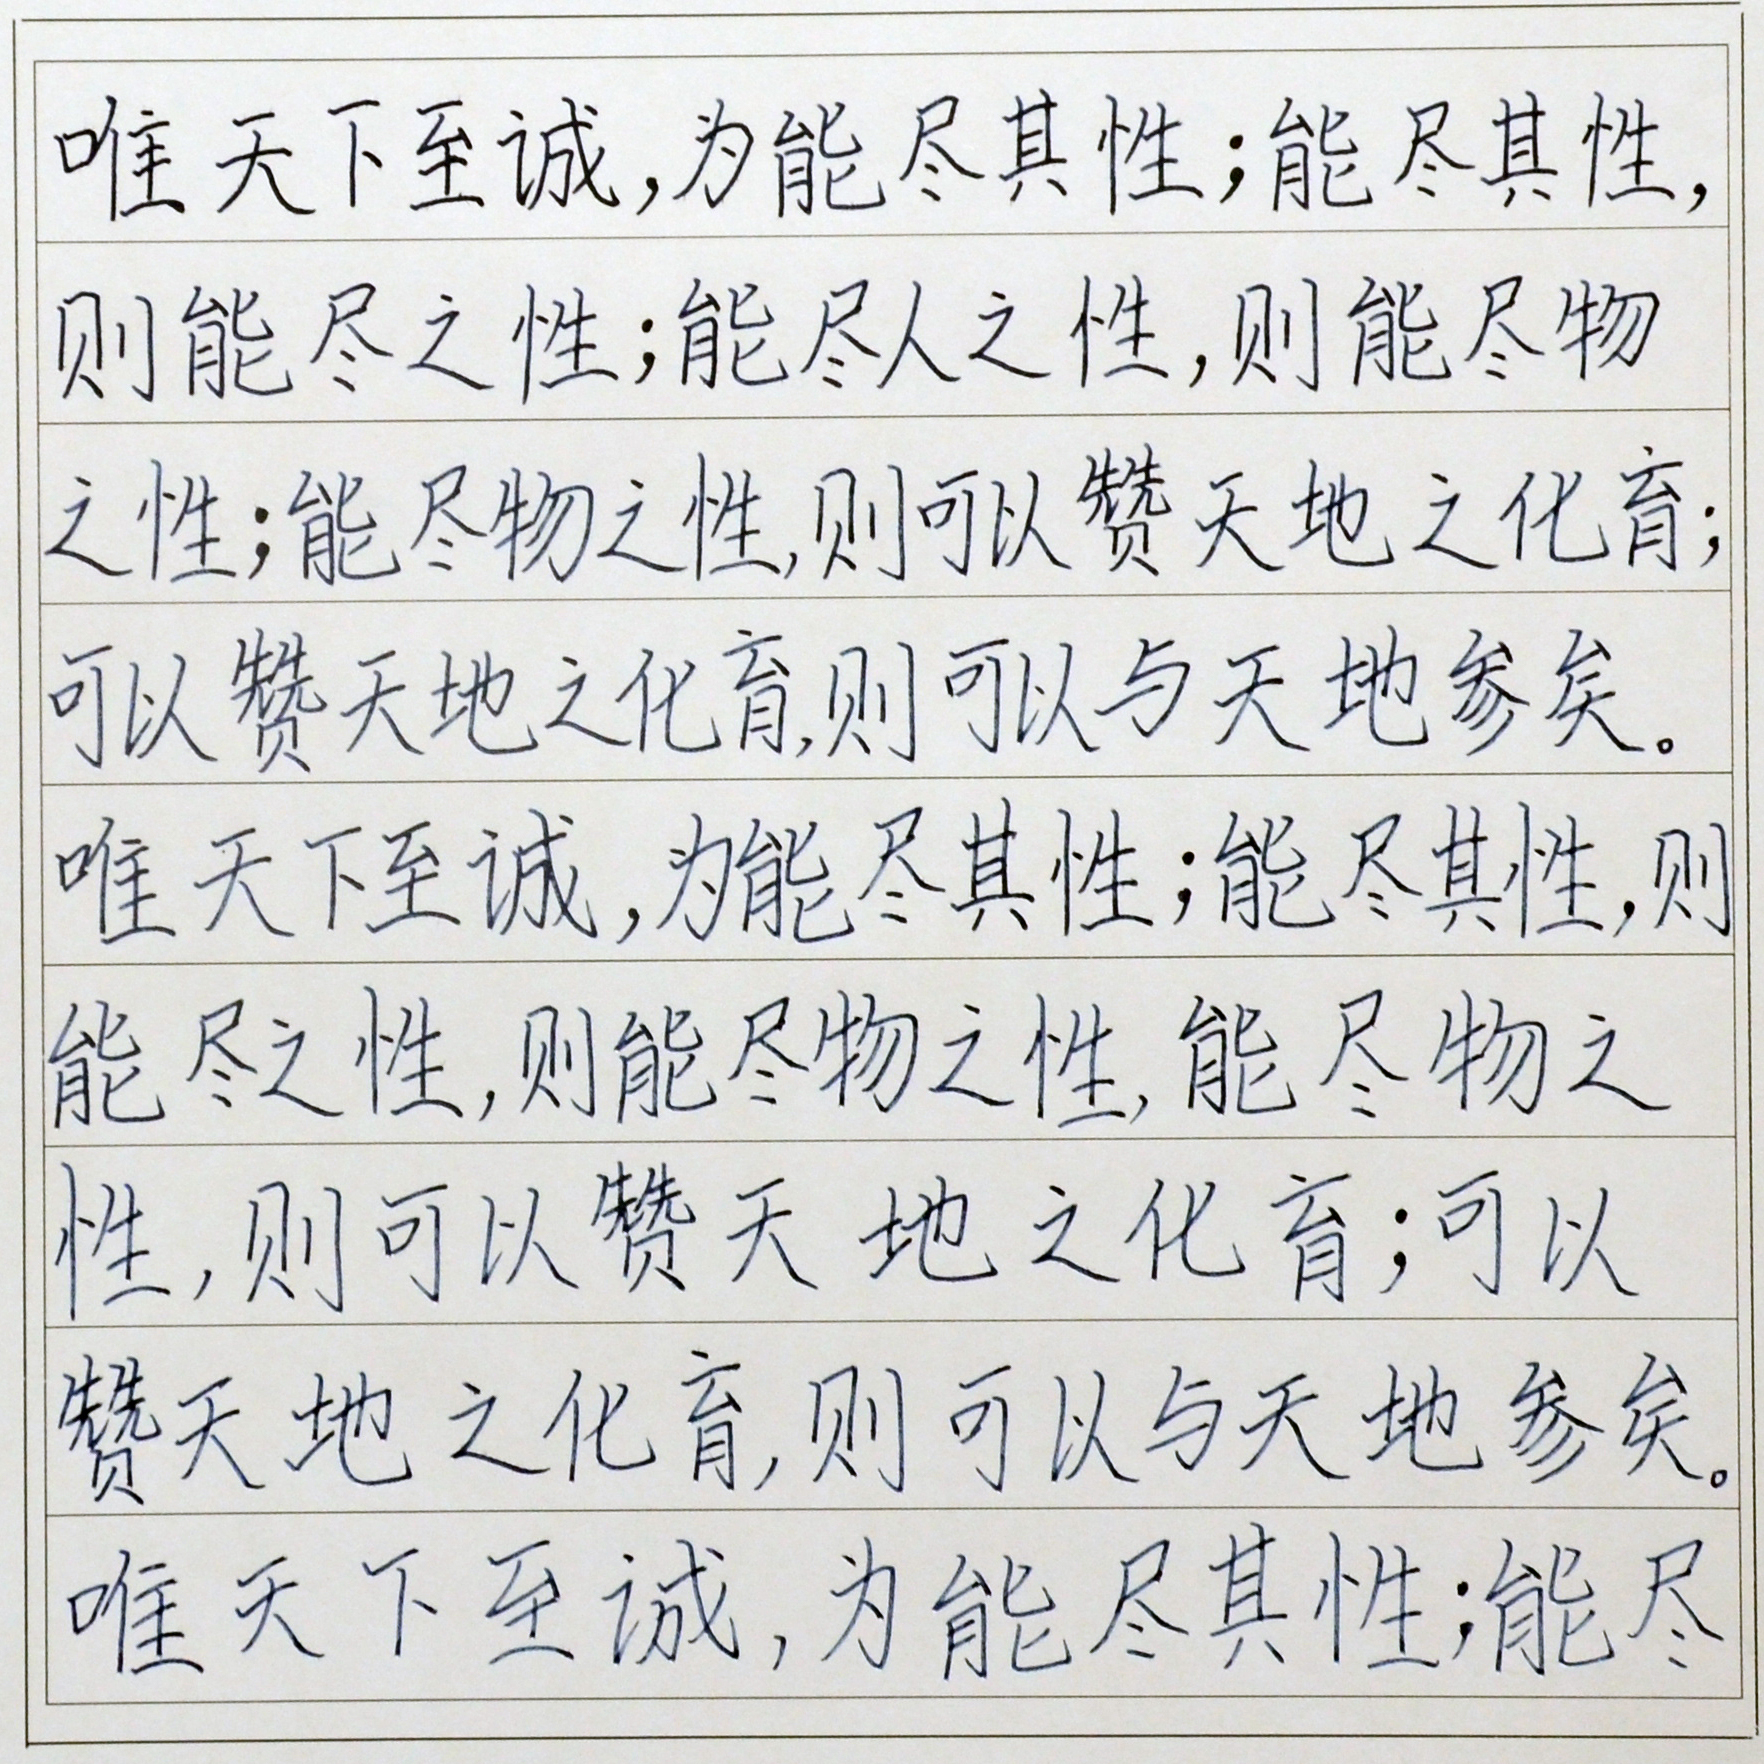 唯天下至诚,为能尽其性;能尽其性,
则能尽之性;能尽人之性,则能尽物
之性;能尽物之性,则可以赞天地之化育;
可以赞天地之化育,则可以与天地参矣。
唯天下至诚,为能尽其性;能尽其性,则
能尽之性,则能尽物之性,能尽物之
性,则可以赞天地之化育;可以
赞天地之化育,则可以与天地参矣。
唯天下至诚,为能尽其性;能尽